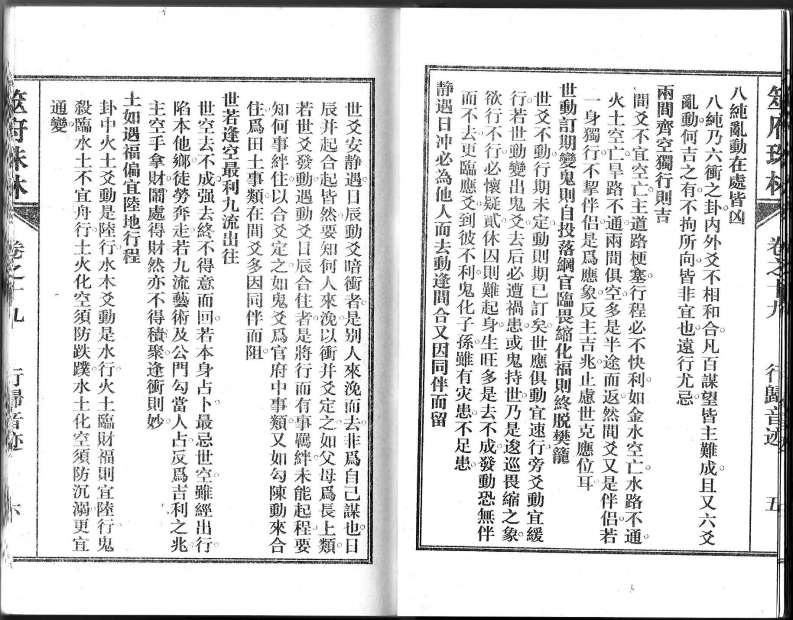 筮府珠林
卷之十九
行歸音迹
五
八純亂動在處皆凶
八純乃六衝之卦内外爻不相和合凡百謀望皆主難成且又六爻
亂動何吉之有不拘所向皆非宜也遠行尤忌
兩間齊空獨行則吉
間爻不宜空亡主道路梗塞行程必不快利如金水空亡水路不通
火土空亡旱路不通兩間俱空多是半途而返然間爻又是伴侣若
一身獨行不挈伴侣是爲應象反主吉兆止慮世克應位耳
世動訂期變鬼則自投落網官臨畏縮化福則終脱樊籠
世爻不動行期未定動則期已訂矣世應俱動宜速行旁爻動宜緩
行若世動變出鬼爻去后必遭禍患或鬼持世乃是逡巡畏縮之象
欲行不行必懷疑貳休囚則難起身生旺多是去不成發動恐無伴
而不去更臨應爻到彼不利鬼化子孫雖有灾患不足患
静遇日冲必為他人而去動逢間合又因同伴而留
世爻安静遇日辰動爻暗衝者是别人來浼而去非爲自己謀也日
辰并起合起皆然要知何人來浼以衝并爻定之如父母爲長上類
若世爻發動遇動爻日辰合住者是將行而有事羈絆未能起程要
知何事絆住以合爻定之如鬼爻爲官府中事類又如勾陳動來合
住爲田土事類在間爻多因同伴而阻
世若逢空最利九流出往
世空去不成强去終不得意而回若本身占卜最忌世空雖經出行
陷本他鄉徒勞奔走若九流藝術及公門勾當人占反爲吉利之兆
主空手拿財鬧處得財然亦不得積聚逢衝則妙
土如遇福偏宜陸地行程
卦中火土爻動是陸行水木爻動是水行火土臨財福則宜陸行鬼
殺臨水土不宜舟行土火化空須防跌蹼水土化空須防沉溺更宜
通變
筮府珠林
卷之十九
行歸音迹
六